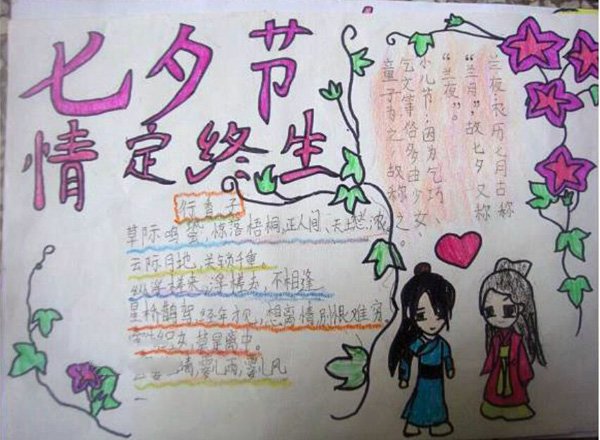 七夕节
情定终生
兰夜:农历七月古称
“兰月”,故七夕又称
“兰夜”。
小儿节:因为乞巧、
乞文等俗多由少女、
童子为之,故称之。
行香子
草际鸣蛩,惊落梧桐,正人间、天上愁浓。
云阶月地,关锁千重。
纵浮槎来,浮槎去,不相逢
星桥鹊驾,经年才见,想离情别恨难穷。
牵牛织女,莫是离中。
晴,霎儿雨,霎儿风